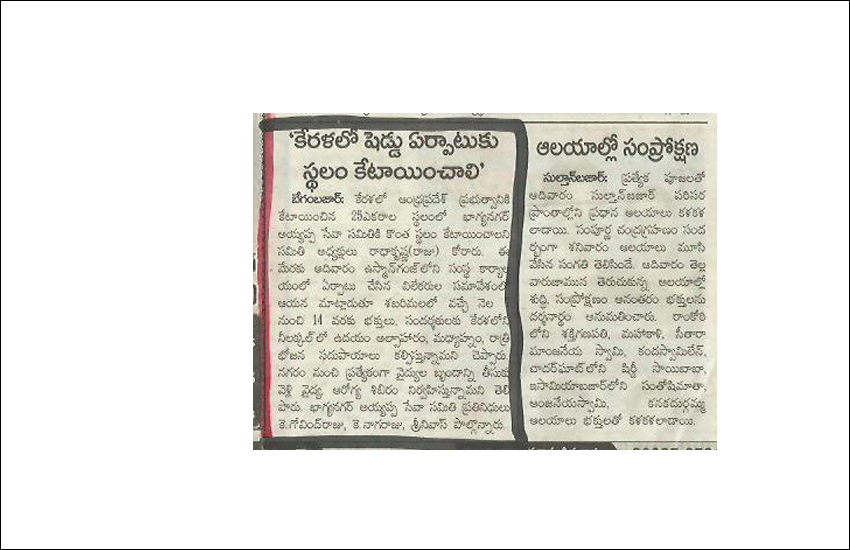 ‘కేరళలో షెడ్డు ఏర్పాటుకు
స్థలం కేటాయించాలి’
బేగంబజార్: కేరళలో ఆంధ్రప్రదేశ్ ప్రభుత్వానికి
కేటాయించిన 25ఎకరాల స్థలంలో భాగ్యనగర్
అయ్యప్ప సేవా సమితికి కొంత స్థలం కేటాయించాలని
సమితి అధ్యక్షులు రాధాకృష్ణ(రాజు) కోరారు. ఈ
మేరకు ఆదివారం ఉస్మాన్‌గంజ్‌లోని సంస్థ కార్యాల
యంలో ఏర్పాటు చేసిన విలేకరుల సమావేశంలో
ఆయన మాట్లాడుతూ శబరిమలలో వచ్చే నెల
నుంచి 14 వరకు భక్తులు, సందర్శకులకు కేరళలోని
నీలక్కల్‌లో ఉదయం అల్పాహారం, మధ్యాహ్నం, రాత్రి
భోజన సదుపాయాలు కల్పిస్తున్నామని చెప్పారు.
నగరం నుంచి ప్రత్యేకంగా వైద్యుల బృందాన్ని తీసుకు
వెళ్లి వైద్య, ఆరోగ్య శిబిరం నిర్వహిస్తున్నామని తెలి
పారు. భాగ్యనగర్ అయ్యప్ప సేవా సమితి ప్రతినిధులు
కె.గోవింద్‌రాజు, కె.నాగరాజు, శ్రీనివాస్ పాల్గొన్నారు.
ఆలయాల్లో సంప్రోక్షణ
సుల్తాన్‌బజార్: ప్రత్యేక పూజలతో
ఆదివారం సుల్తాన్‌బజార్ పరిసర
ప్రాంతాల్లోని ప్రధాన ఆలయాలు కళకళ
లాడాయి. సంపూర్ణ చంద్రగ్రహణం సంద
ర్భంగా శనివారం ఆలయాలు మూసి
వేసిన సంగతి తెలిసిందే. ఆదివారం తెల్ల
వారుజామున తెరుచుకున్న ఆలయాల్లో
శుద్ధి, సంప్రోక్షణం అనంతరం భక్తులను
దర్శనార్థం అనుమతించారు. రాంకోఠి
లోని శక్తిగణపతి, మహాకాళి, సీతారా
మాంజనేయ స్వామి, కందస్వామిలేన్,
చాదర్‌ఘాట్‌లోని షిర్డీ సాయిబాబా,
ఇసామియాబజార్‌లోని సంతోషిమాతా,
ఆంజనేయస్వామి, కనకదుర్గమ్మ
ఆలయాలు భక్తులతో కళకళలాడాయి.